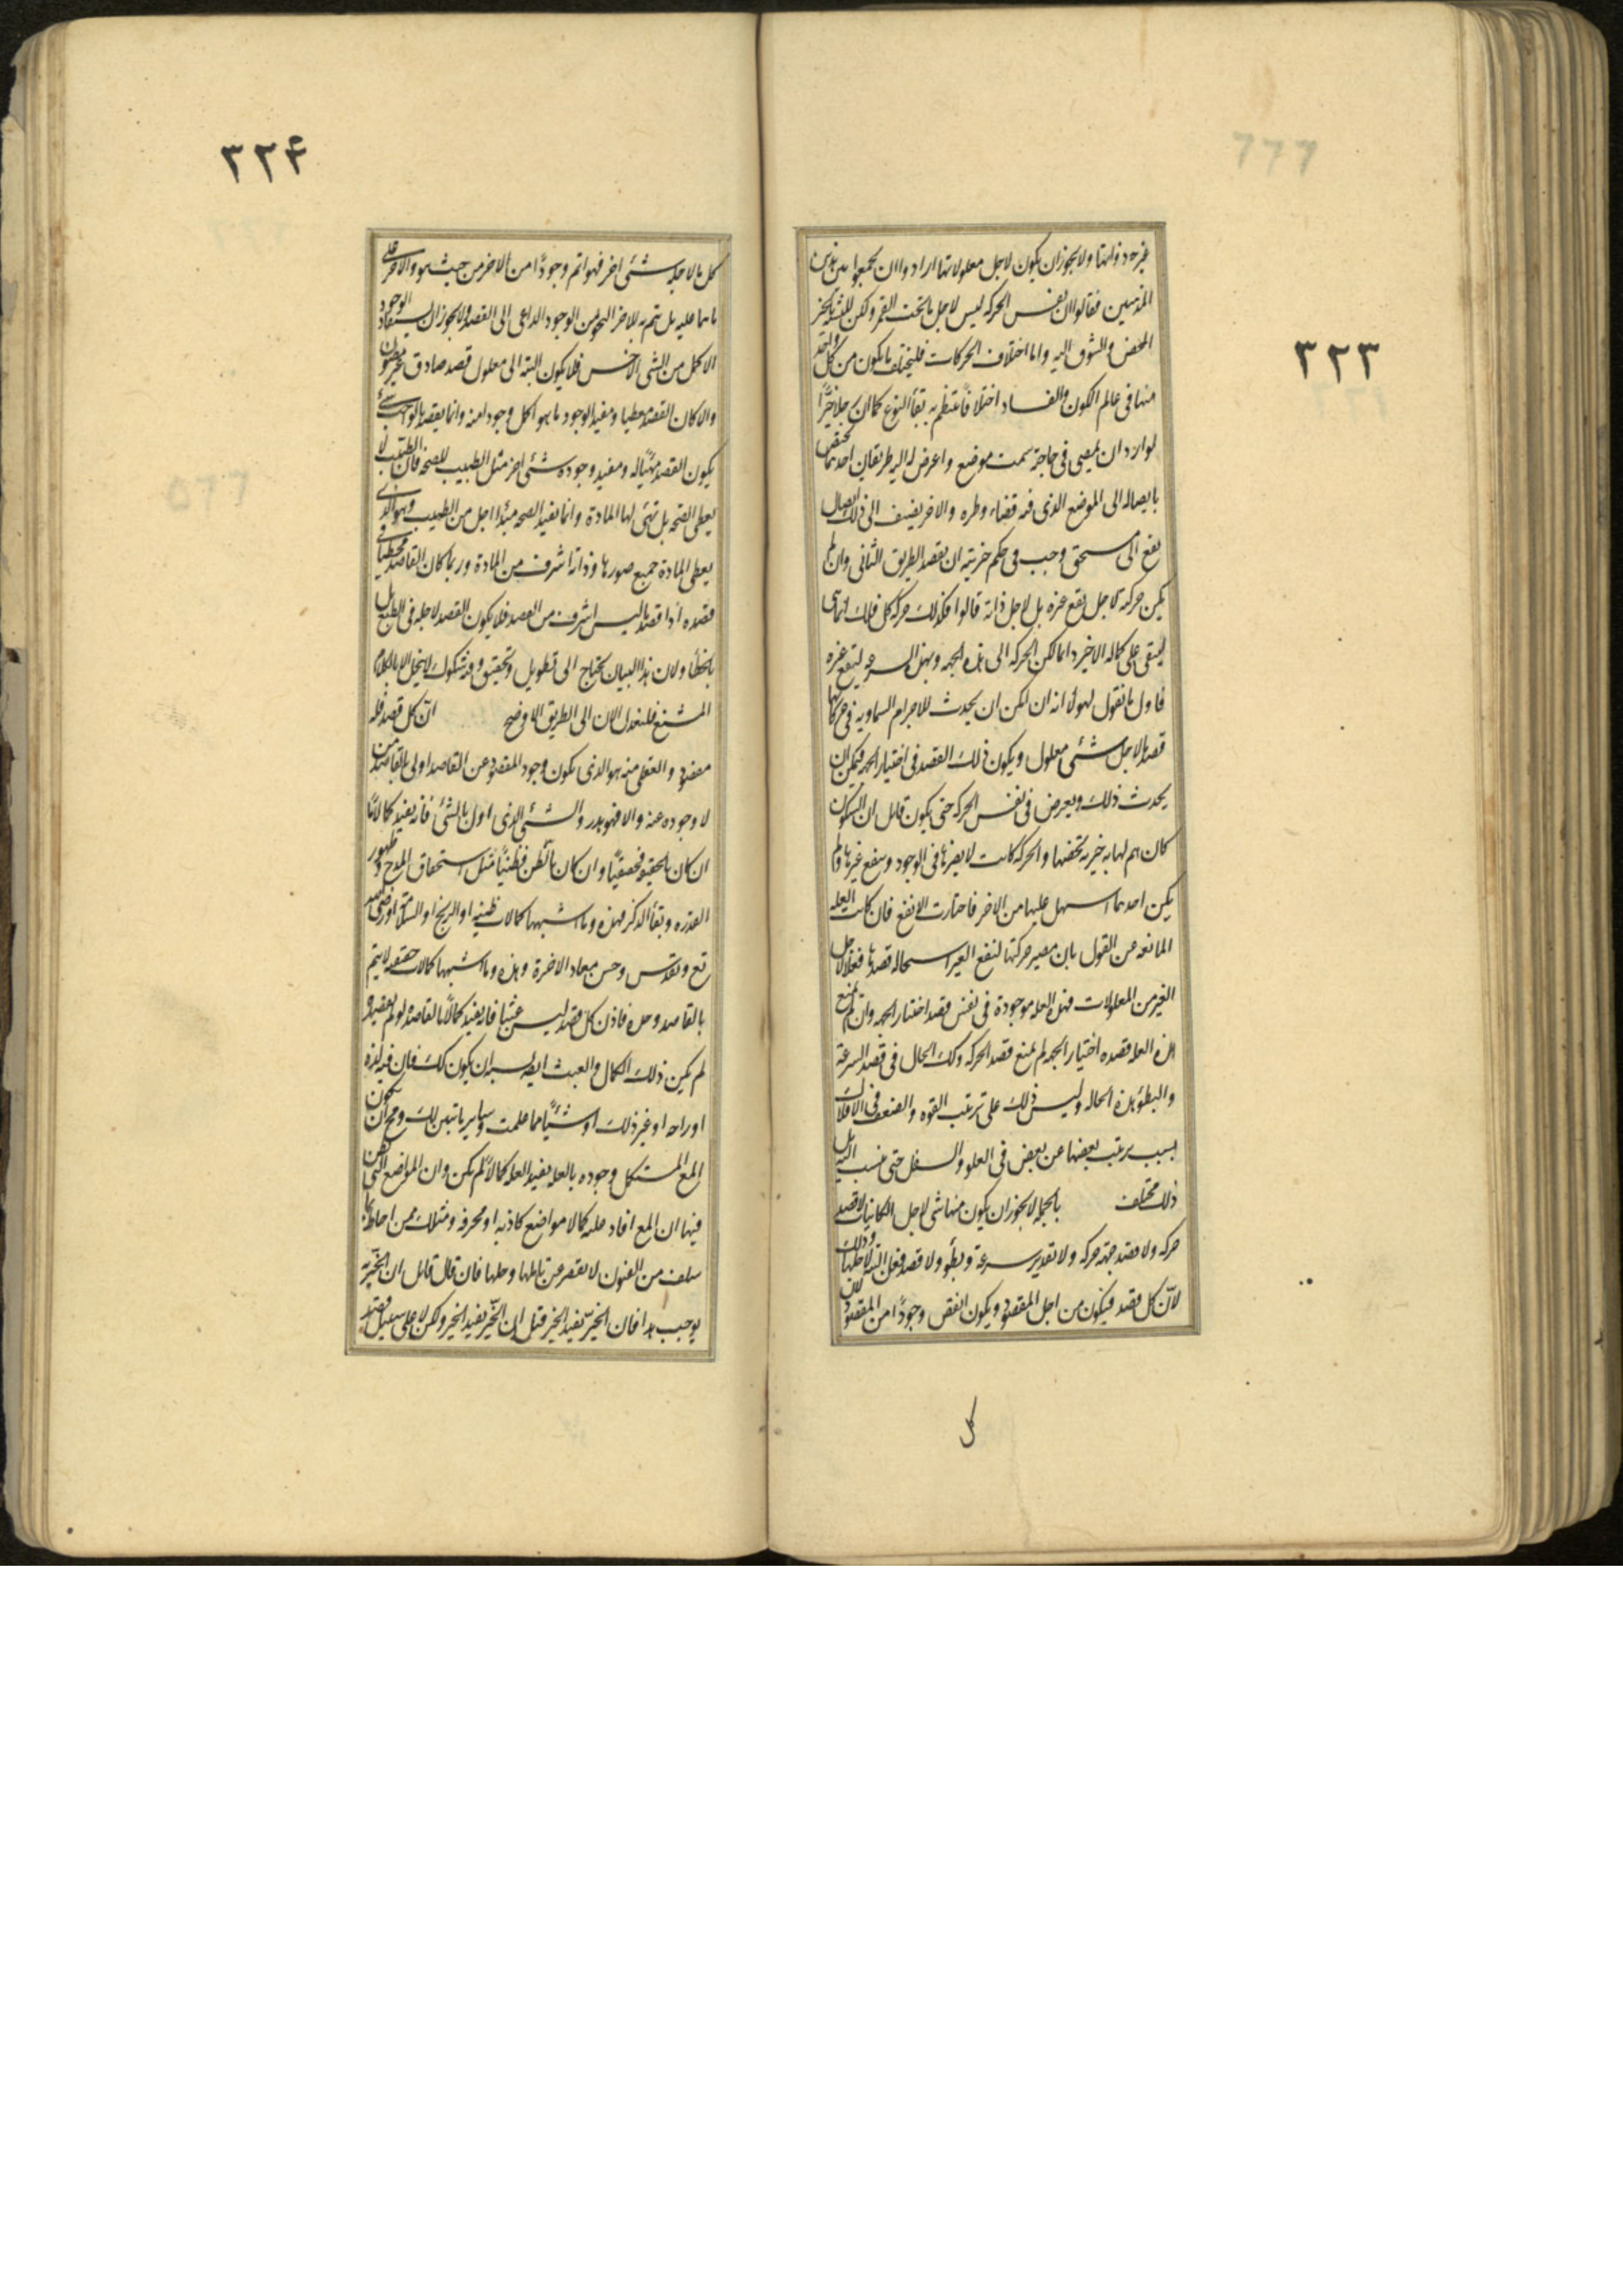 ٣٢٣
غير حد ذواتها ولا يجوز ان يكون لاجل معلولاتها ارادوا ان يجمعوا بين هذين
المذهبين فقالوا ان نفس الحركه ليس لاجل ما تحت القمر ولكن للتشبه بالخير
المحض والشوق اليه واما اختلاف الحركات فليختلف ما يكون من كل واحد
منها فى عالم الكون والفساد اختلافا ينتظم به بقأ النوع كما ان رجلا خيّرًا
لو اراد ان يمضى فى حاجته سمت موضع واعرض له اليه طريقان احدهما يختص
بايصاله الى الموضع الذى فيه قضاء وطره والاخر يضيف الى ذلك ايصال
نفع الى مستحق وجب فى حكم خيريته ان يقصد الطريق الثانى وان لم
يكن حركته لاجل نفع غيره بل لاجل ذاته قالوا فكذلك حركة كل فلك انما هى
ليبقى على كماله الاخير دائما لكن الحركه الى هذه الجهه وبهذه السرعه لينفع غيره
فاول ما نقول لهولأ انه ان امكن ان يحدث للاجرام السماويه فى حركاتها
قصد ما لاجل شئى معلول ويكون ذلك القصد فى اختيار الجهه فيمكن ان
يحدث ذلك ويعرض فى نفس الحركه حتى يكون قائل ان السكون
كان يتم لها به خيريه تخصها والحركه كانت لا يضرها فى الوجود وينفع غيرها ولم
يكن احدهما اسهل عليها من الاخر فاختارت الانفع فان كانت العله
المانعه عن القول بان مصير حركتها لنفع الغير استحاله قصدها فعلا لاجل
الغير من المعلولات فهذه العله موجودة فى نفس قصد اختيار الجهه وان لم يمنع
هذه العله قصده اختيار الجهه لم يمنع قصد الحركه وكك الحال فى قصد السرعة
والبطؤ هذه الحاله وليس ذلك على ترتيب القوه والضعف فى الافلاك
بسبب ترتيب بعضها عن بعض فى العلو والسفل حتى ينسب اليه بل
ذلك مختلف بالجمله لا يجوز ان يكون منها شى لاجل الكائنات لا قصد
حركه ولا قصد جهة حركه ولا تقدير سرعة وبطؤ ولا قصد فعل البته لاجلها وذلك
لانّ كل قصد فيكون من اجل المقصود ويكون انقص وجودًا من المقصود لان
كل
٣٢۴
كل ما لاجله شئى اخر فهو اتم وجودًا من الاخر من حيث هو والاخر على
ما هما عليه بل يتم به للاخر النحو من الوجود الداعى الى القصد ولا يجوز ان يستفاد الوجود
الاكمل من الشئى الاخس فلا يكون البته الى معلول قصد صادق غير مظنون
والا كان القصد معطيا ومفيد الوجود ما هو اكمل وجودا منه وانما يقصد بالواجب شئ
يكون القصد مهيّأ له ومفيد وجوده شئى اخر مثل الطبيب للصحه فان الطبيب لا
يعطى الصحه بل تهئ لها المادة وانما يفيد الصحه مبدأ اجل من الطبيب وهو الذى
يعطى المادة جميع صورها وذاته اشرف من المادة وربما كان القاصد مخطئا فى
قصده اذا قصد ما ليس اشرف من القصد فلا يكون القصد لاجله فى الطبع بل
بالخطأ ولان هذا البيان يحتاج الى تطويل وتحقيق وفيه شكوك لا ينحل الا بالكلام
المشبع فلنعدل الان الى الطريق الاوضح انّ كل قصد فله
مقصود والعقلى منه هو الذى يكون وجود المقصود عن القاصد اولى بالقاصد من
لا وجوده عنه والا فهو هدر والشئى الذى اولى بالشئى فانه يفيد كمالا ما
ان كان بالحقيقه فحقيقيًا وان كان بالظن فظنيًا مثل استحقاق المدح وظهور
القدره وبقأ الذكر فهذه وما اشبهها كمالات ظنيه او الربح او السلامه او رضى الله
تع وتقدس وحسن معاد الاخرة وهذه وما اشبهها كمالات حقيقيه لا يتم
بالقاصد وحده فاذن كل قصد ليس عبثيا فانه يفيد كمالًا ما لقاصده لو لم يقصده
لم يكن ذلك الكمال والعبث ايضا يشبه ان يكون كك فان فيه لذه
او راحه او غير ذلك او شيًا مما علمت وساير ما تبين لك ومح ان يكون
المع المستكمل وجوده بالعله يفيد العله كمالًا لم يكن وان المواضع التى يظن
فيها ان المع افاد علته كمالا مواضع كاذبه او محرفه ومثلك ممن احاط بما
سلف من الفنون لا يقصر عن تاملها وحلها فان قال قائل ان الخيريّه
يوجب هذا فان الخيّر يفيد الخير قيل له ان الخيّر يفيد الخير ولكن لا على سبيل قصد